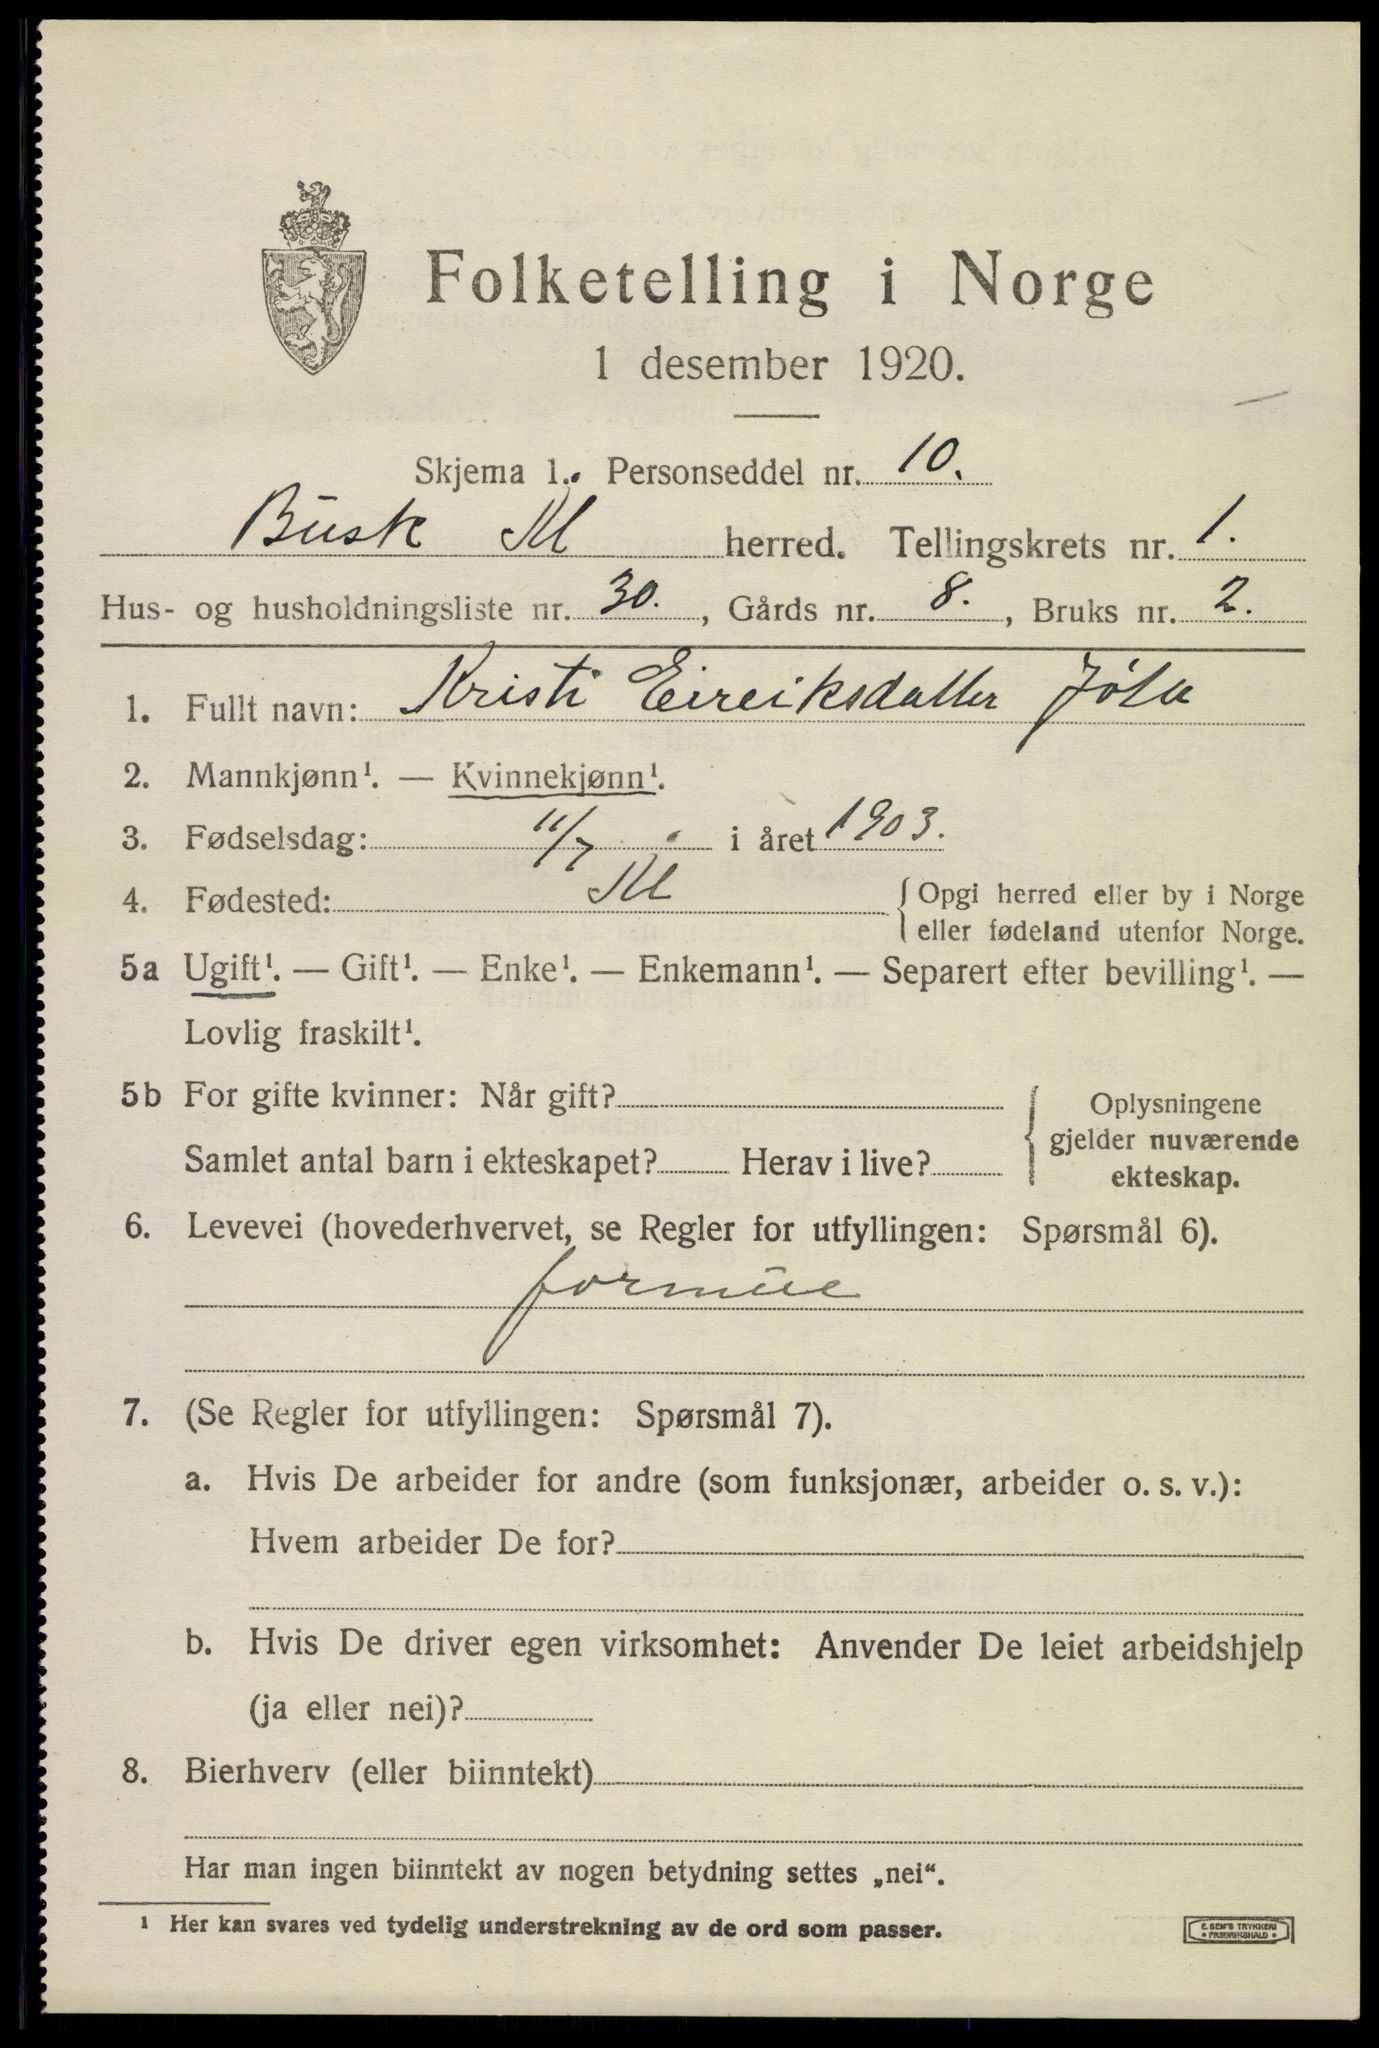 Folketelling i Norge
1 desember 1920.
Skjema 1. Personseddel nr. 10.
Busk Ål herred. Tellingskrets nr. 1.
Hus- og husholdningsliste nr. 30., Gårds nr. 8., Bruks nr. 2.
1. Fullt navn: Kristi Eireiksdatter
2. Mannkjønn¹. — Kvinnekjønn¹.
3. Fødselsdag: 11/7 i året 1903.
4. Fødested: Ål { Opgi herred eller by i Norge
eller fødeland utenfor Norge.
5a Ugift¹. — Gift¹. — Enke¹. — Enkemann¹. — Separert efter bevilling¹. —
Lovlig fraskilt¹.
5b For gifte kvinner: Når gift?
Samlet antal barn i ekteskapet? Herav i live?
Oplysningene
gjelder nuværende
ekteskap.
6. Levevei (hovederhvervet, se Regler for utfyllingen: Spørsmål 6).
formue
7. (Se Regler for utfyllingen: Spørsmål 7).
a. Hvis De arbeider for andre (som funksjonær, arbeider o. s. v.):
Hvem arbeider De for?
b. Hvis De driver egen virksomhet: Anvender De leiet arbeidshjelp
(ja eller nei)?
8. Bierhverv (eller biinntekt)
Har man ingen biinntekt av nogen betydning settes „nei“.
¹ Her kan svares ved tydelig understrekning av de ord som passer.
E. SEM'S TRYKKERI
FREDRIKSHALD